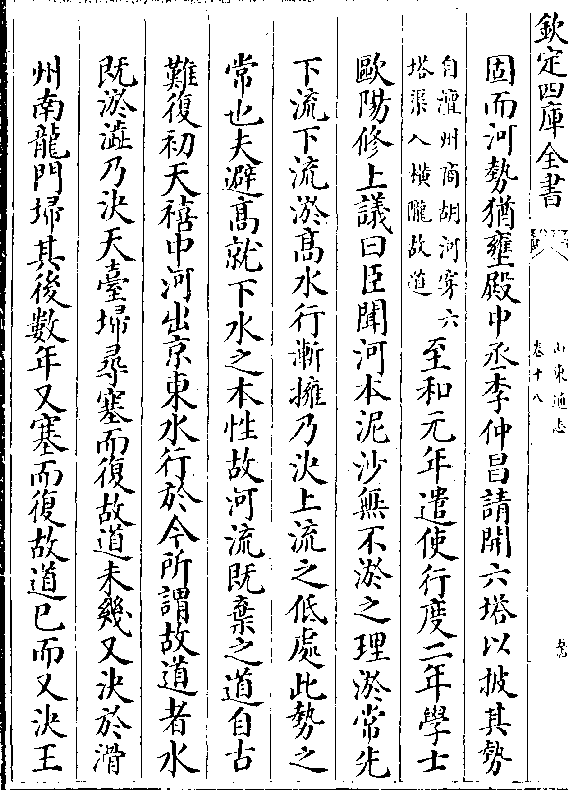 欽定四庫全書
山東通志
卷十八
固而河勢猶壅殿中丞李仲昌請開六塔以披其勢
自澶州商胡河穿六
塔渠入橫隴故道
至和元年遣使行度二年學士
歐陽修上議曰臣聞河本泥沙無不淤之理淤常先
下流下流淤髙水行漸擁乃決上流之低處此勢之
常也夫避髙就下水之本性故河流既棄之道自古
難復初天禧中河出京東水行於今所謂故道者水
既淤澁乃決天臺埽尋塞而復故道未幾又決於滑
州南龍門埽其後數年又塞而復故道已而又決王